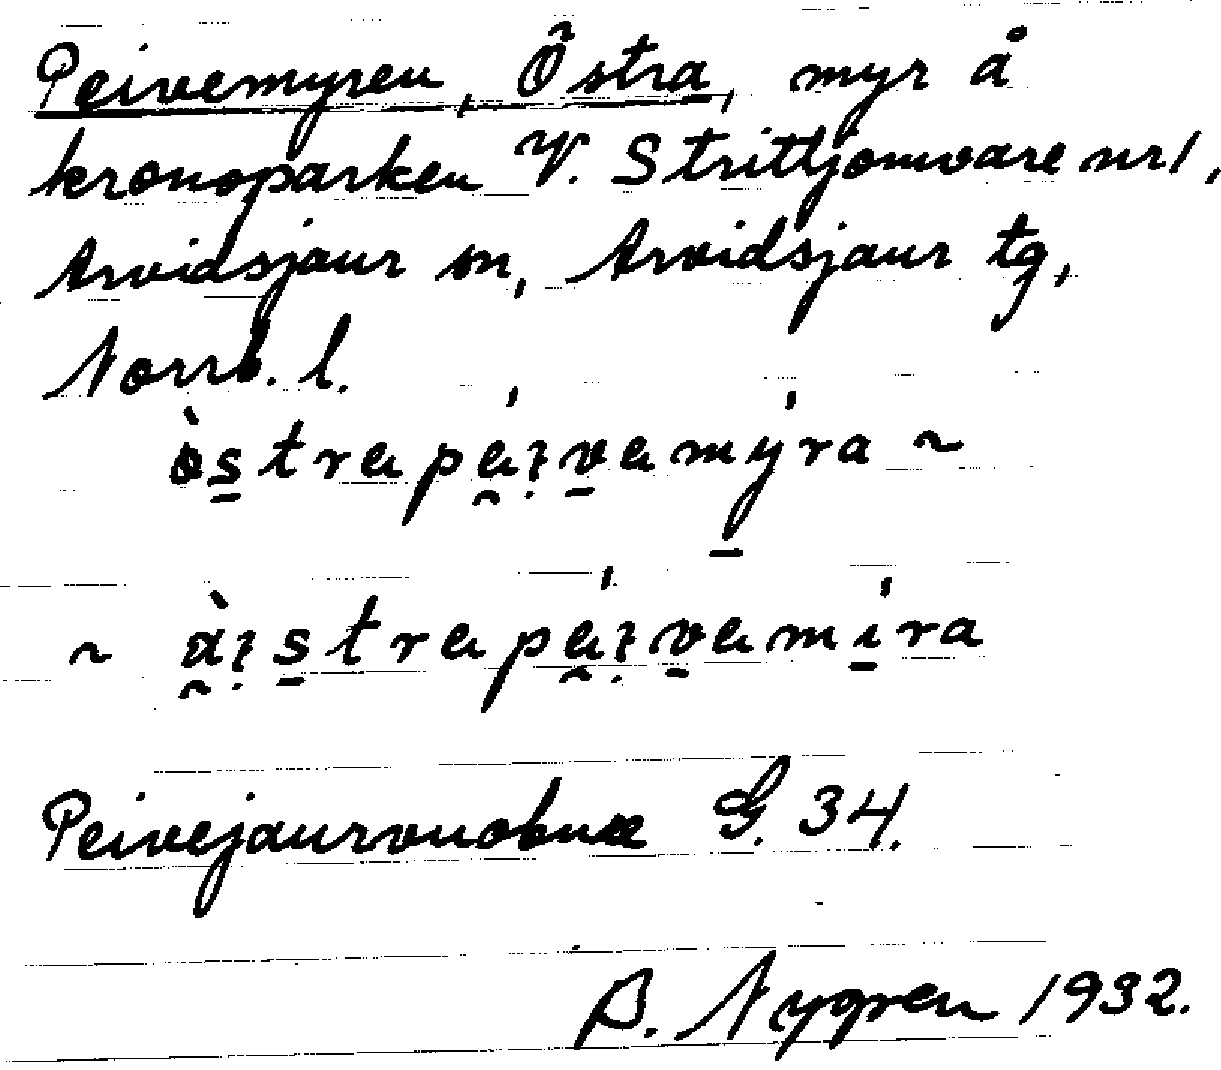 Peivemyren, Östra, myr å
kronoparken V. Strittjomvare nr 1,
Arvidsjaur sn, Arvidsjaur tg,
Norrb. l.
òstra páivamýra ~
~ àistra páivamíra
Peivejaurvuobme G. 34.
B. Nygren 1932.